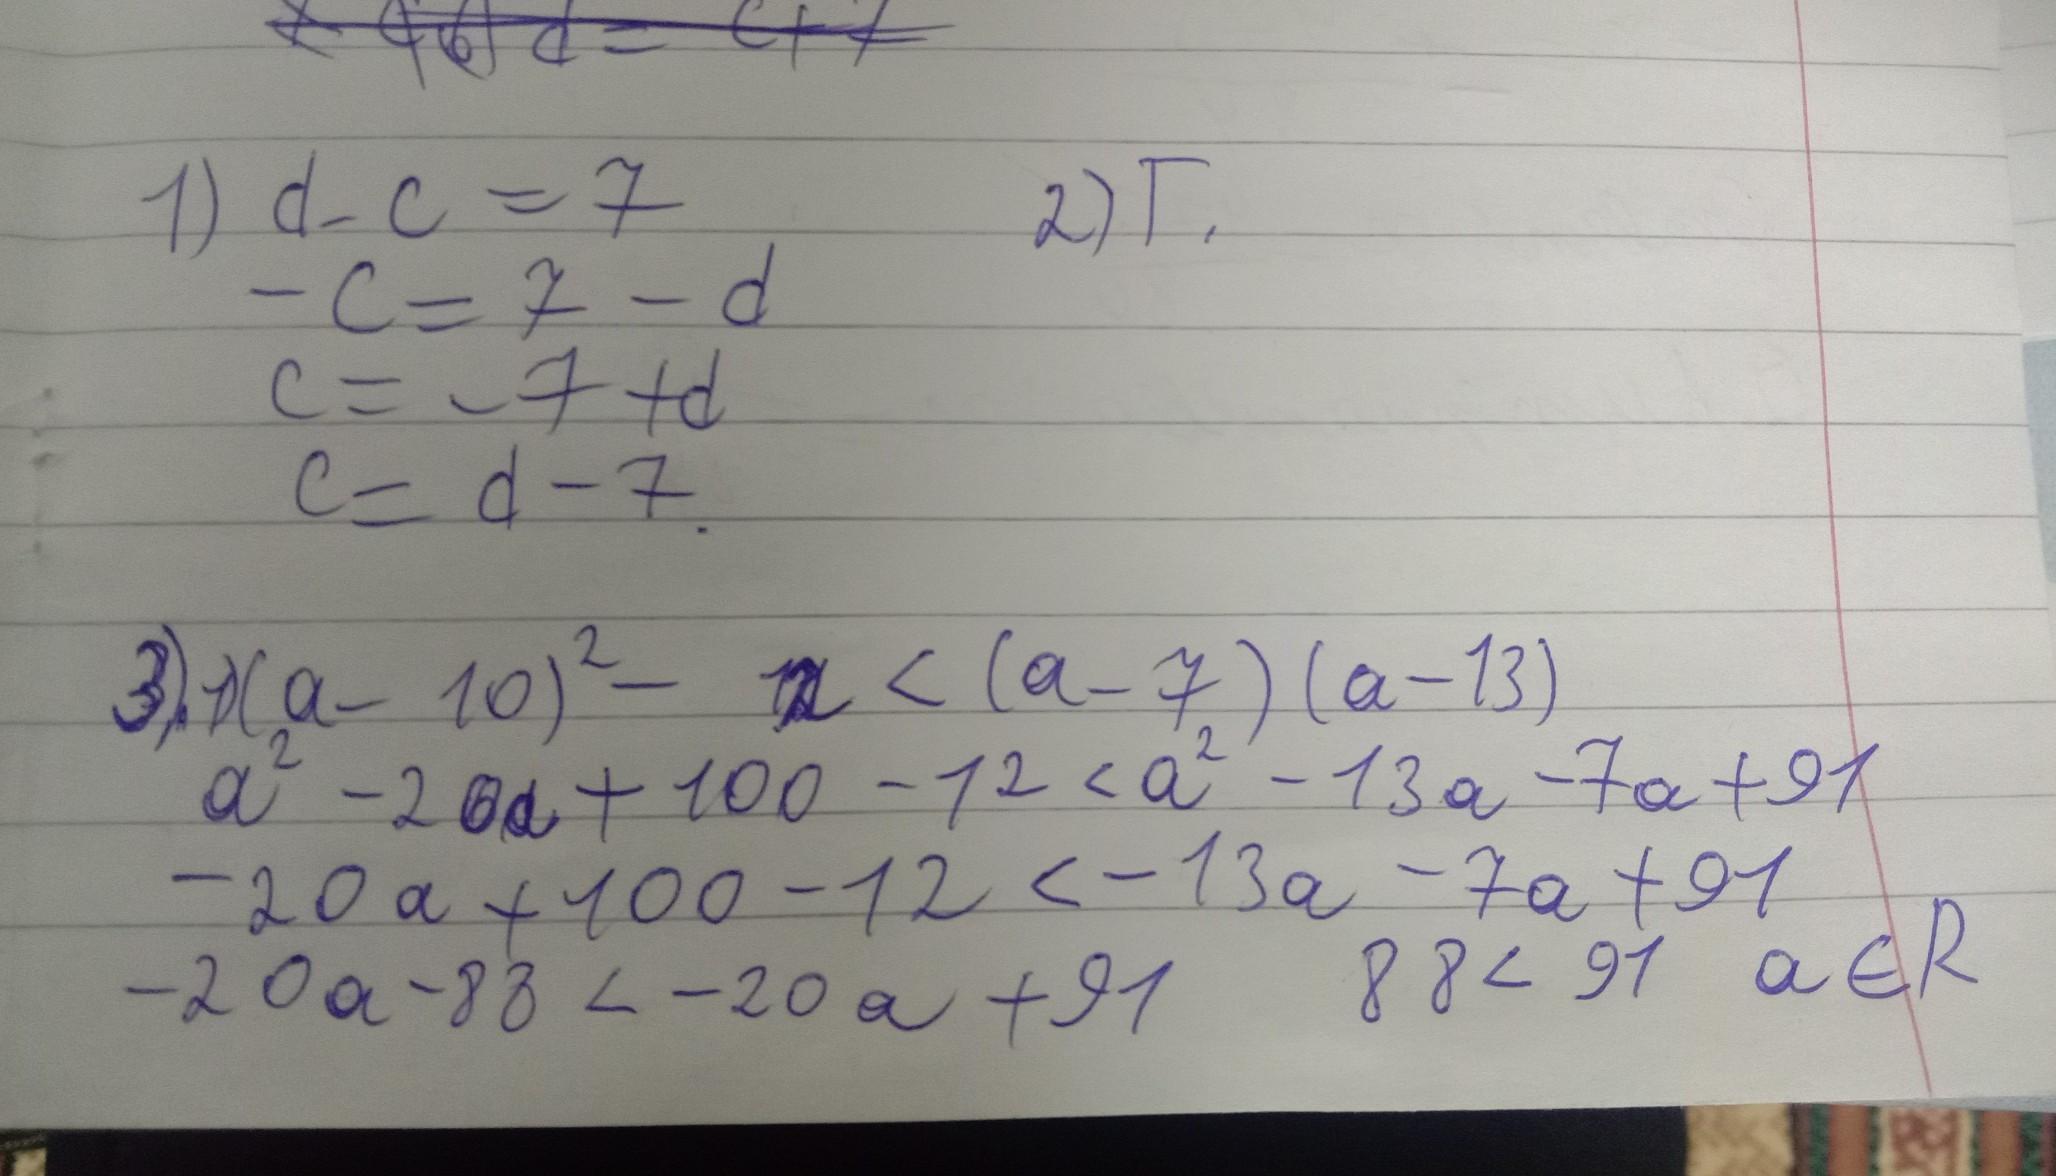 d = c + 7
1) d - c = 7
2) Г.
-c = 7 - d
c = -7 + d
c = d - 7.
3) 1) (a - 10)² - 12 < (a - 7)(a - 13)
a² - 20a + 100 - 12 < a² - 13a - 7a + 91
-20a + 100 - 12 < -13a - 7a + 91
-20a - 88 < -20a + 91 88 < 91 a ∈ R